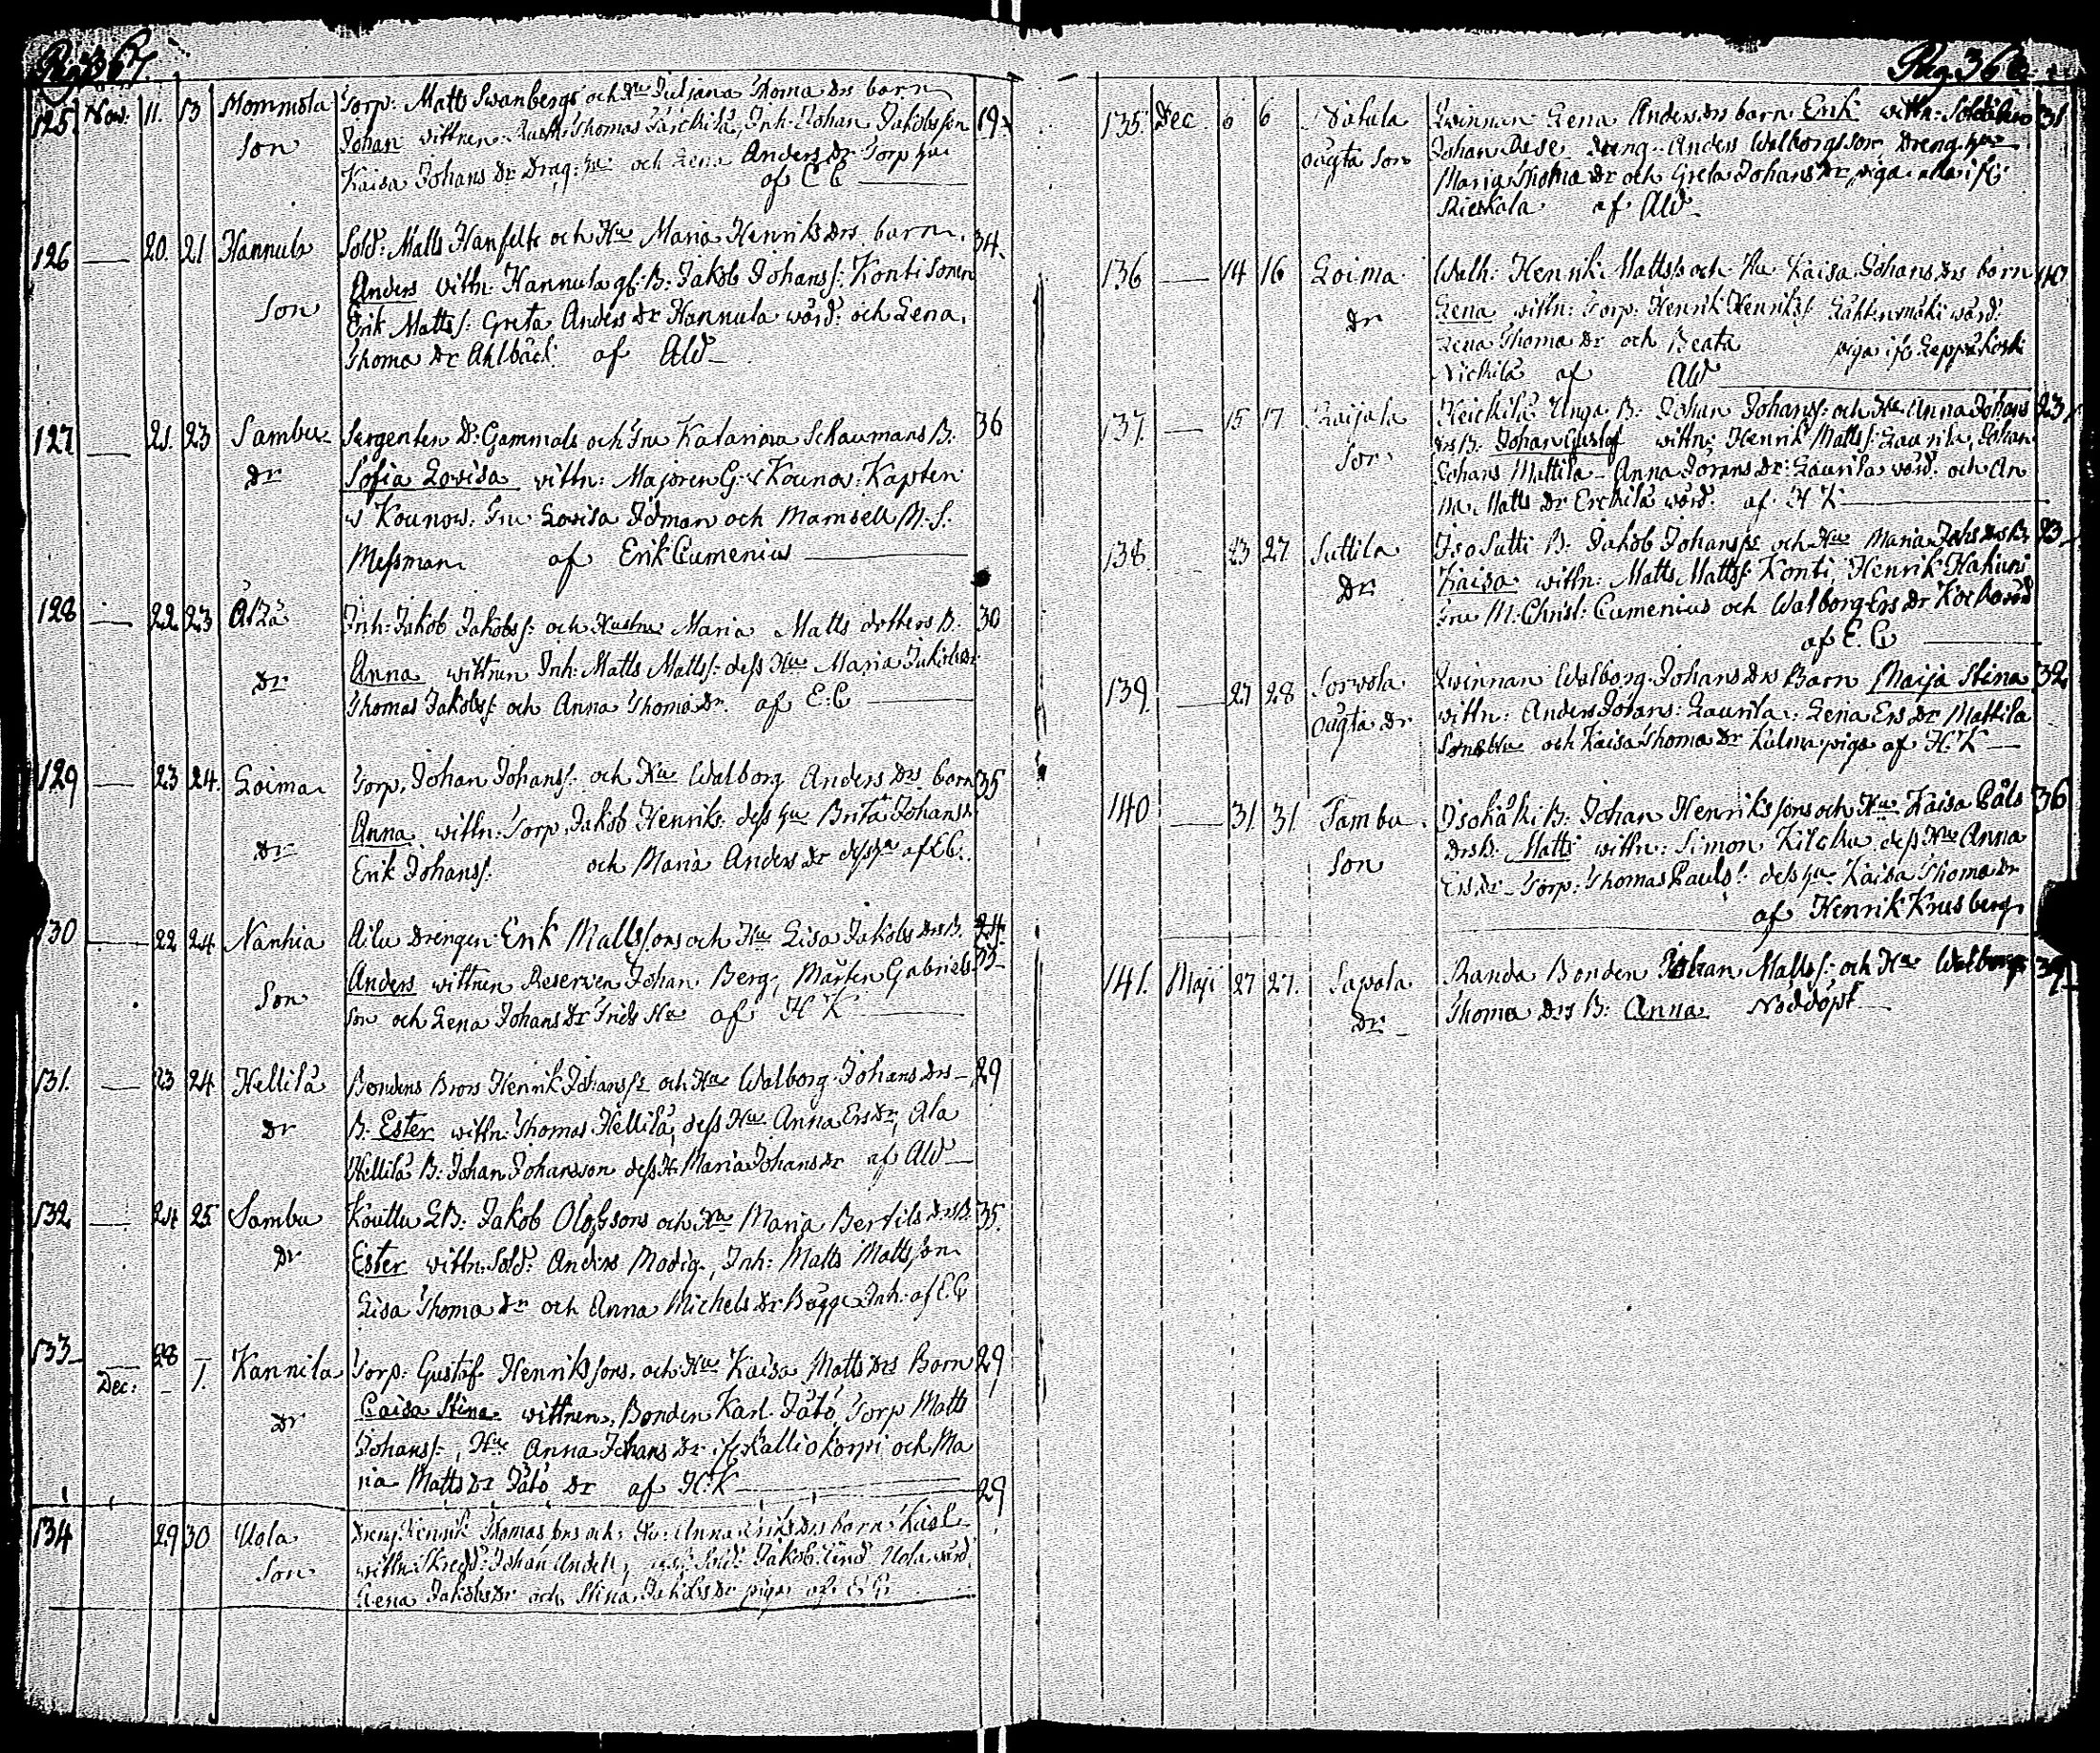 125. Nov. 11. 13 Mommola Torp: Matts Swanbergs och Hu Juliana Thoma Drs barn 19.
Son Johan wittnen. Thomas Inh: Johan Jakobsson
Kaisa Johans Dr Drag: Hu och Lena Anders Dr Torp Hu
af E C
126 — 20. 21 Hannula Sold: Matts Hanfelts och Hu Maria Henriks Drs barn 34.
Son Anders wittn: Hannula gl: B: Jakob Johans/: Konti Sonen
Erik Matts/: Greta Anders Dr Hannula wärd: och Lena
Thoma Dr Ahlbäck af AW
127 — 21. 23 Sambu Sergenten D: Gammals och Fru Katarina Schaumans B: 36
Dr Sofia Lovisa wittn: Majoren G: v Kounow: Kapten
v Kounow. Fru Lovisa Idman och Mamsell M. S.
Messman af Erik Cumenius
128 — 22 23 Inh: Jakob Jakobs/: och Hustru Maria Matts dotters B. 30
Dr Anna wittnen Inh: Matts Matts/: dess Hu Maria Jakobs Dr
Thomas Jakobs/: och Anna Thoma Dr. af E: C
129 — 23 24. Loima Torp. Johan Johans/: och Hu Walborg Anders Drs barn 35
Dr Anna wittn: Torp. Jakob Henriks: dess Hu Brita Johans
Erik Johans/: och Maria Anders Dr dess Hu af E C.
130 — 22 24 Nanhia Ailu Drengen Erik Matts/ons och Hu Lisa Jakobs Drs B. 24
Son Anders wittnen Reserven Johan Berg, Mårten Gabriels 33
Son och Lena Johans Dr Frids Hu af H K
131. — 23 24 Hellilä Bondens Brors Henrik Johans/s och Hu Walborg Johans Drs 29
Dr B. Ester wittn: Thomas Hellilä, dess Hu Anna Ers Dr, Ala
Hellilä B: Johan Johansson dess H: Maria Johans Dr af AW
132 — 24 25 Sambu Kouttu LB: Jakob Olofssons och Hu Maria Bertils Drs B. 35.
Dr Ester wittn: Sold: Anders Modig, Inh: Matts Mattsson
Lisa Thoma Dr och Anna Michels Dr Bågge Inh: af E C
133 — 28 — Kannila Torp: Gustaf Henriks/ons och Hu Kaisa Matts Drs Barn 29
Dec: — 1.
Dr Caisa Stina wittnen, Bonden Karl Jätö, Torp Matts
Johans/:, Hu Anna Johans Dr Kalliokorpi och Ma
ria Matts Dr Jätö Dr af H: K 29
134 29 30 Uola Dreng Henrik Thomas/ons och Hu Anna Eriks Drs barn Karl
Son wittn: Johan Andell, Sold: Jakob Lind Uola wärd
Lena Jakobs Dr och Stina Jakobs Dr piga af E C
135. Dec. 6 6 Qwinnan Lena Anders Drs barn Erik wittn: Soldaten 31
oägta Son Johan Dreng: Anders Walborgsson Dreng Hu
Maria Thoma Dr och Greta Johans Dr piga alla
Rieskala af AW
136 — 14 16 Loima Walh: Henrik Matts/s och Hu Kaisa Johans Drs barn 40
Dr Lena wittn: Torp: Henrik Henriks/: wärd:
Lena Thoma Dr och Beata piga Leppäkoski
af AW
137. — 15 17 Raijala Heickilä Unga B: Johan Johans/: och Hu Anna Johans 23
Son Drs B: Johan Gustaf wittn: Henrik Matts/: Laurila, Johan
Johans Mattila Anna Görans Dr: Laurila wärd: och An
na Matts Dr Erckilä wärd: af H K
138. 23 27 Suttila Iso Sutti B: Jakob Johans/s och Hu Maria Johs Drs B: 23
Dr Kaisa wittn: Matts Matts/: Konti, Henrik Hakuni
Fru M: Christ: Cumenius och Walborg Ers Dr
af E. C
139. — 27 28 Sorvola Qwinnan Walborg Johans Drs Barn Maija Stina 32
oägta Dr wittn: Anders Johans: Laurila: Lena Ers Dr Mattila
och Kaisa Thoma Dr piga af H: K
140 — 31. 31. Sambu Isokäki B: Johan Henriks/ons och Hu Kaisa Påls 36
Son Drs B: Matts wittn: Simon dess Hu Anna
Ers Dr Torp: Thomas Pauls/: dess Hu Kaisa Thoma Dr
af Henrik Krusberg
141. Maji 27 27. Sapola Randa Bonden Johan Matts/: och Hu Walborg
Dr Thoma Drs B: Anna Nöddöpt